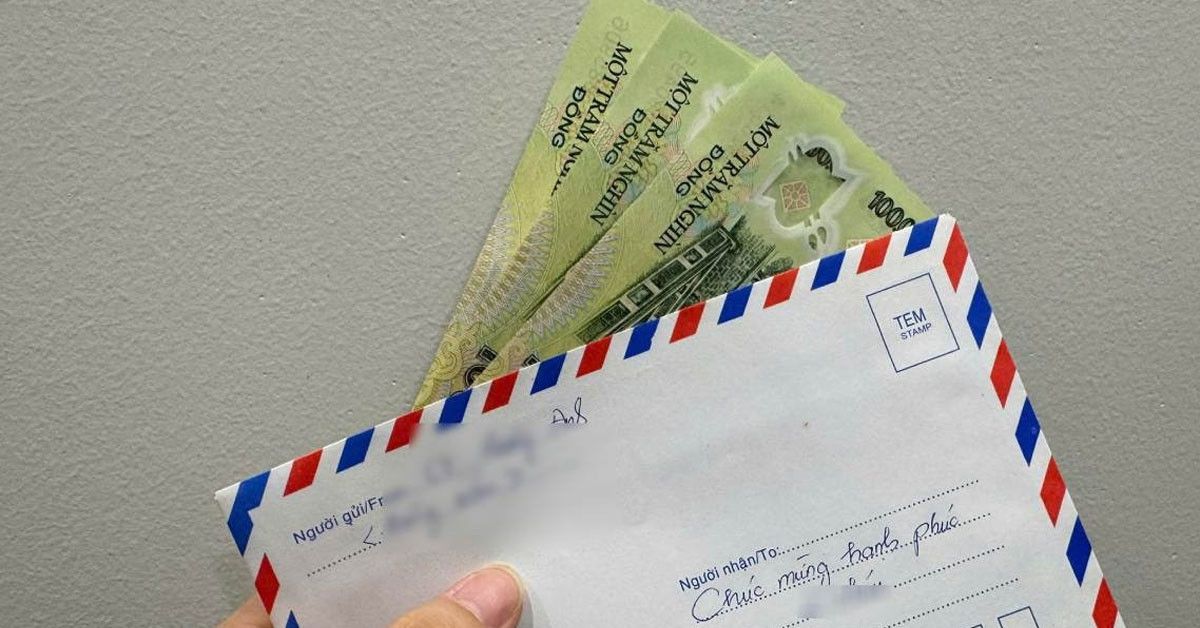 MỘT TRĂM
ĐỒNG
MỘT TRĂM NGHÌN
ĐỒNG
MỘT TRĂM NGHÌN
ĐỒNG
1000
TEM
STAMP
Anh
Người gửi/Fr
Người nhận/To:
Chúc mừng hạnh phúc